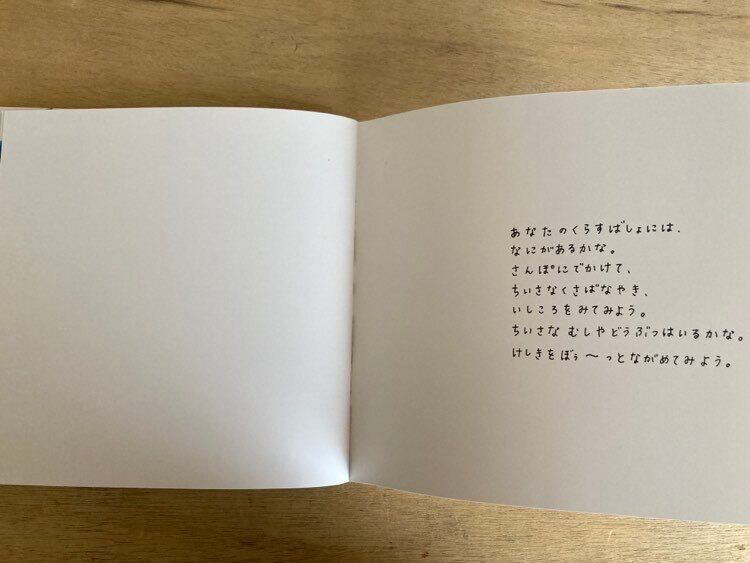 あなたのくらすばしょには、
なにがあるかな。
さんぽにでかけて、
ちいさなくさばなやき、
いしころをみてみよう。
ちいさな むしやどうぶつはいるかな。
けしきをぼぅ〜っとながめてみよう。